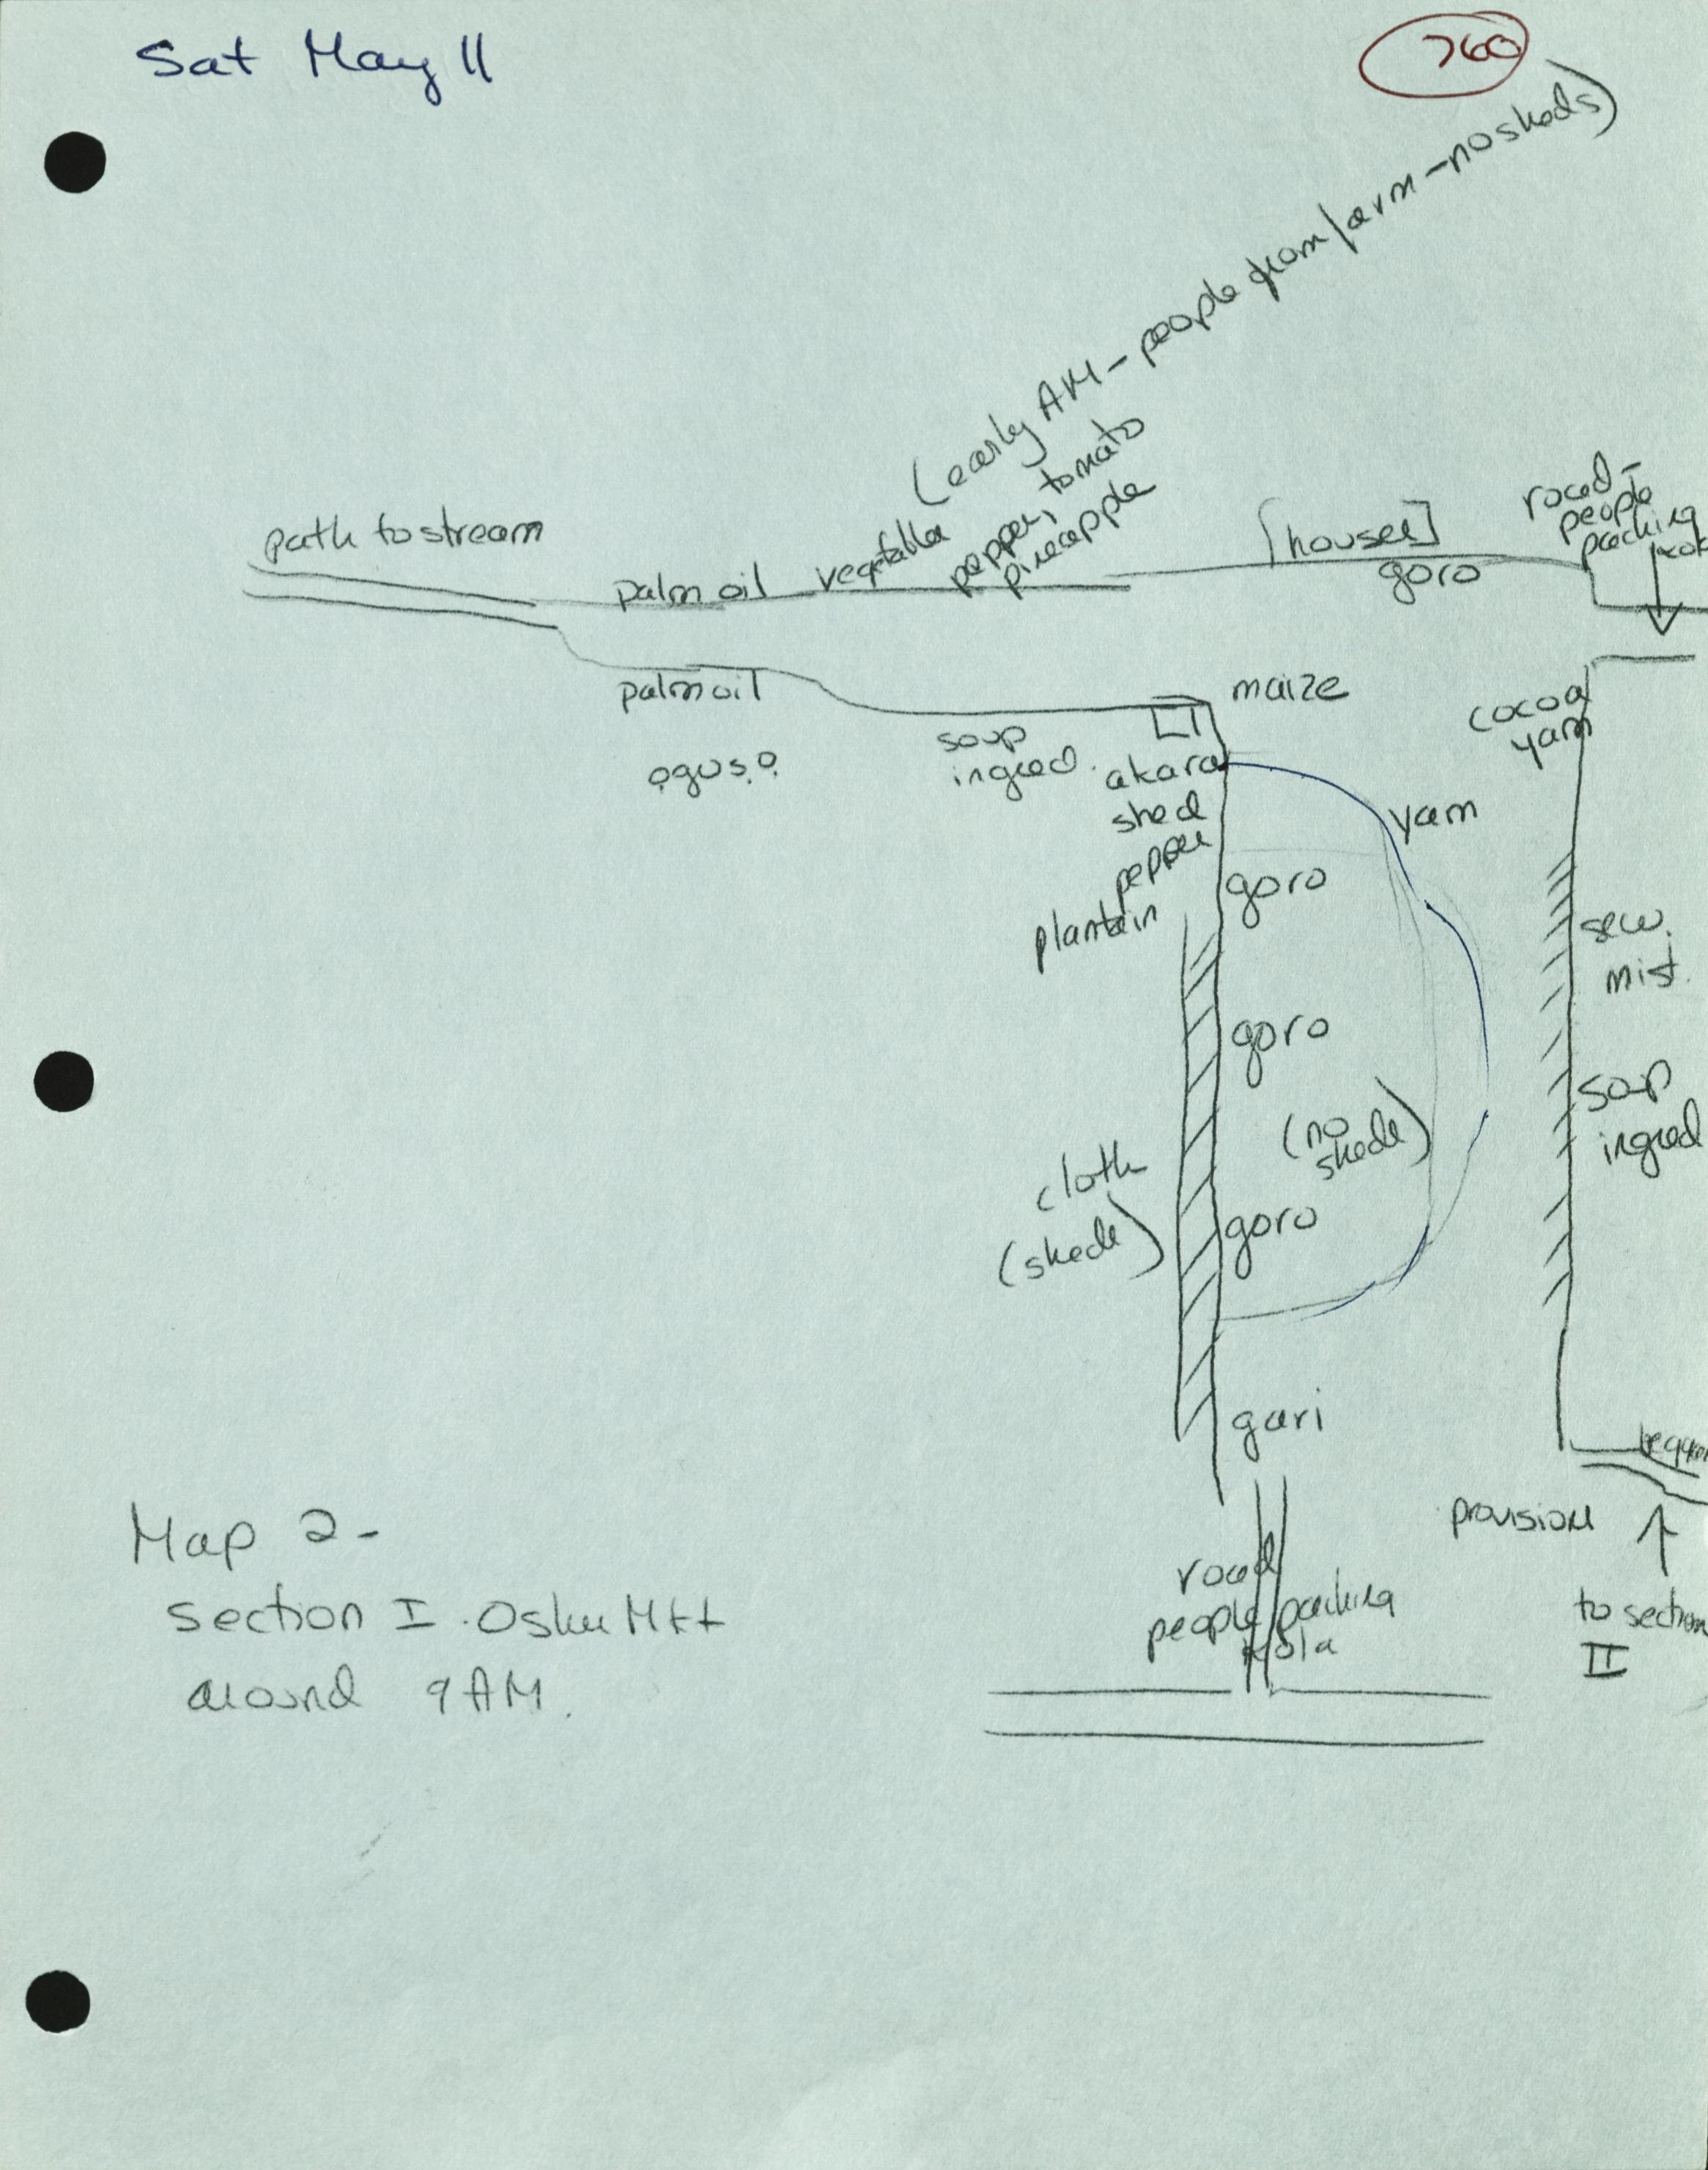 Sat May 11
760
(early AM - people from farm - no sheds)
path to stream
palm oil
vegetables
pepper, tomato
pineapple
[houses]
goro
road -
people
packing
kola
palm oil
ọgusọ
soup
ingred.
maize
akara
shed
pepper
plantain
cocoa
yam
yam
goro
goro
goro
(no
sheds)
cloth
(sheds)
sew.
mist.
soup
ingred
gari
provisions
to section
II
road
people packing
kola
Map 2 -
section I. Oshu Mkt
around 9 AM.